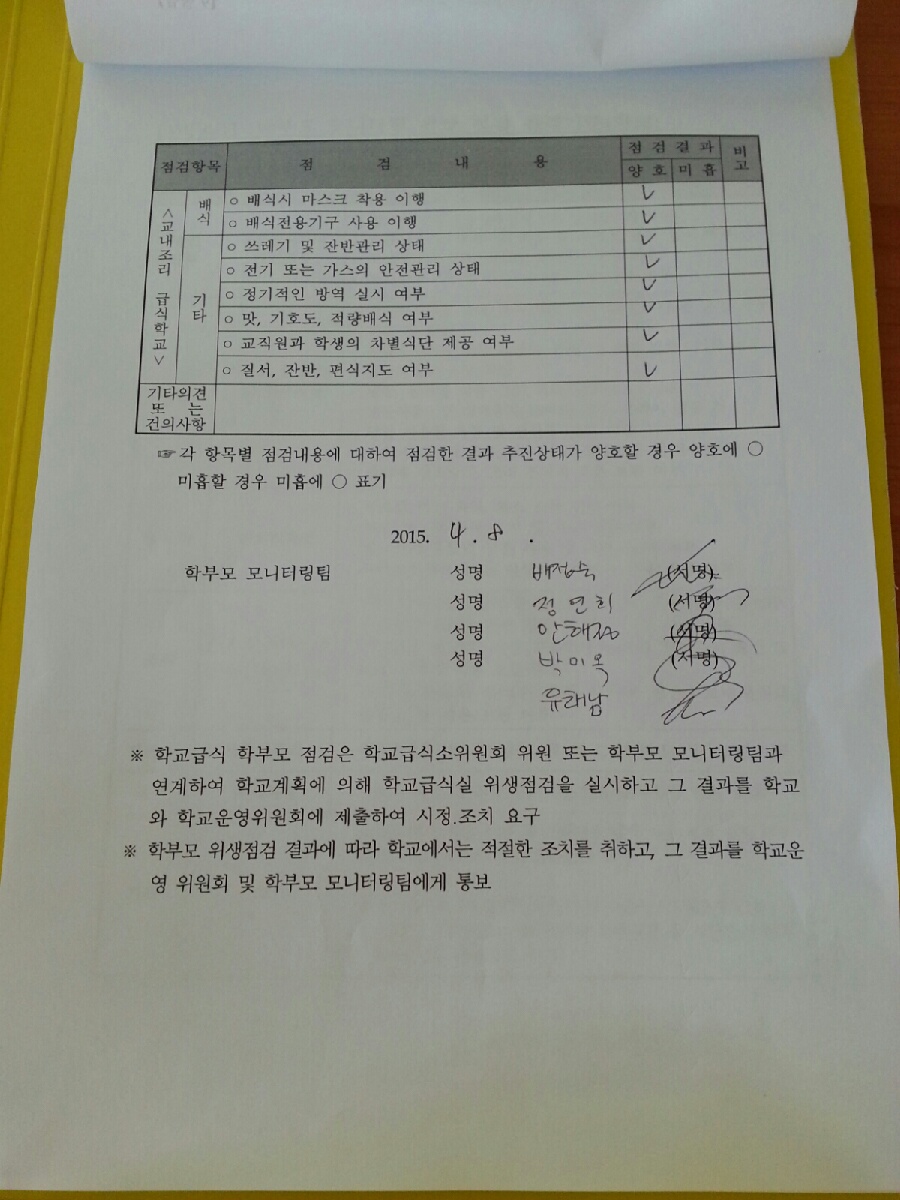 점검항목 점 검 내 용 점 검 결 과 비고
양 호 미 흡
<교내조리 급식학교>
배식
○ 배식시 마스크 착용 이행 ✓
○ 배식전용기구 사용 이행 ✓
기타
○ 쓰레기 및 잔반관리 상태 ✓
○ 전기 또는 가스의 안전관리 상태 ✓
○ 정기적인 방역 실시 여부 ✓
○ 맛, 기호도, 적량배식 여부 ✓
○ 교직원과 학생의 차별식단 제공 여부 ✓
○ 질서, 잔반, 편식지도 여부 ✓
기타의견
또 는
건의사항
☞ 각 항목별 점검내용에 대하여 점검한 결과 추진상태가 양호할 경우 양호에 ○
미흡할 경우 미흡에 ○ 표기
2015. 4 . 8 .
학부모 모니터링팀 성명 배정숙 (서명)
성명 정연희 (서명)
성명 (서명)
성명 박미옥 (서명)
유해남
※ 학교급식 학부모 점검은 학교급식소위원회 위원 또는 학부모 모니터링팀과
연계하여 학교계획에 의해 학교급식실 위생점검을 실시하고 그 결과를 학교
와 학교운영위원회에 제출하여 시정.조치 요구
※ 학부모 위생점검 결과에 따라 학교에서는 적절한 조치를 취하고, 그 결과를 학교운
영 위원회 및 학부모 모니터링팀에게 통보